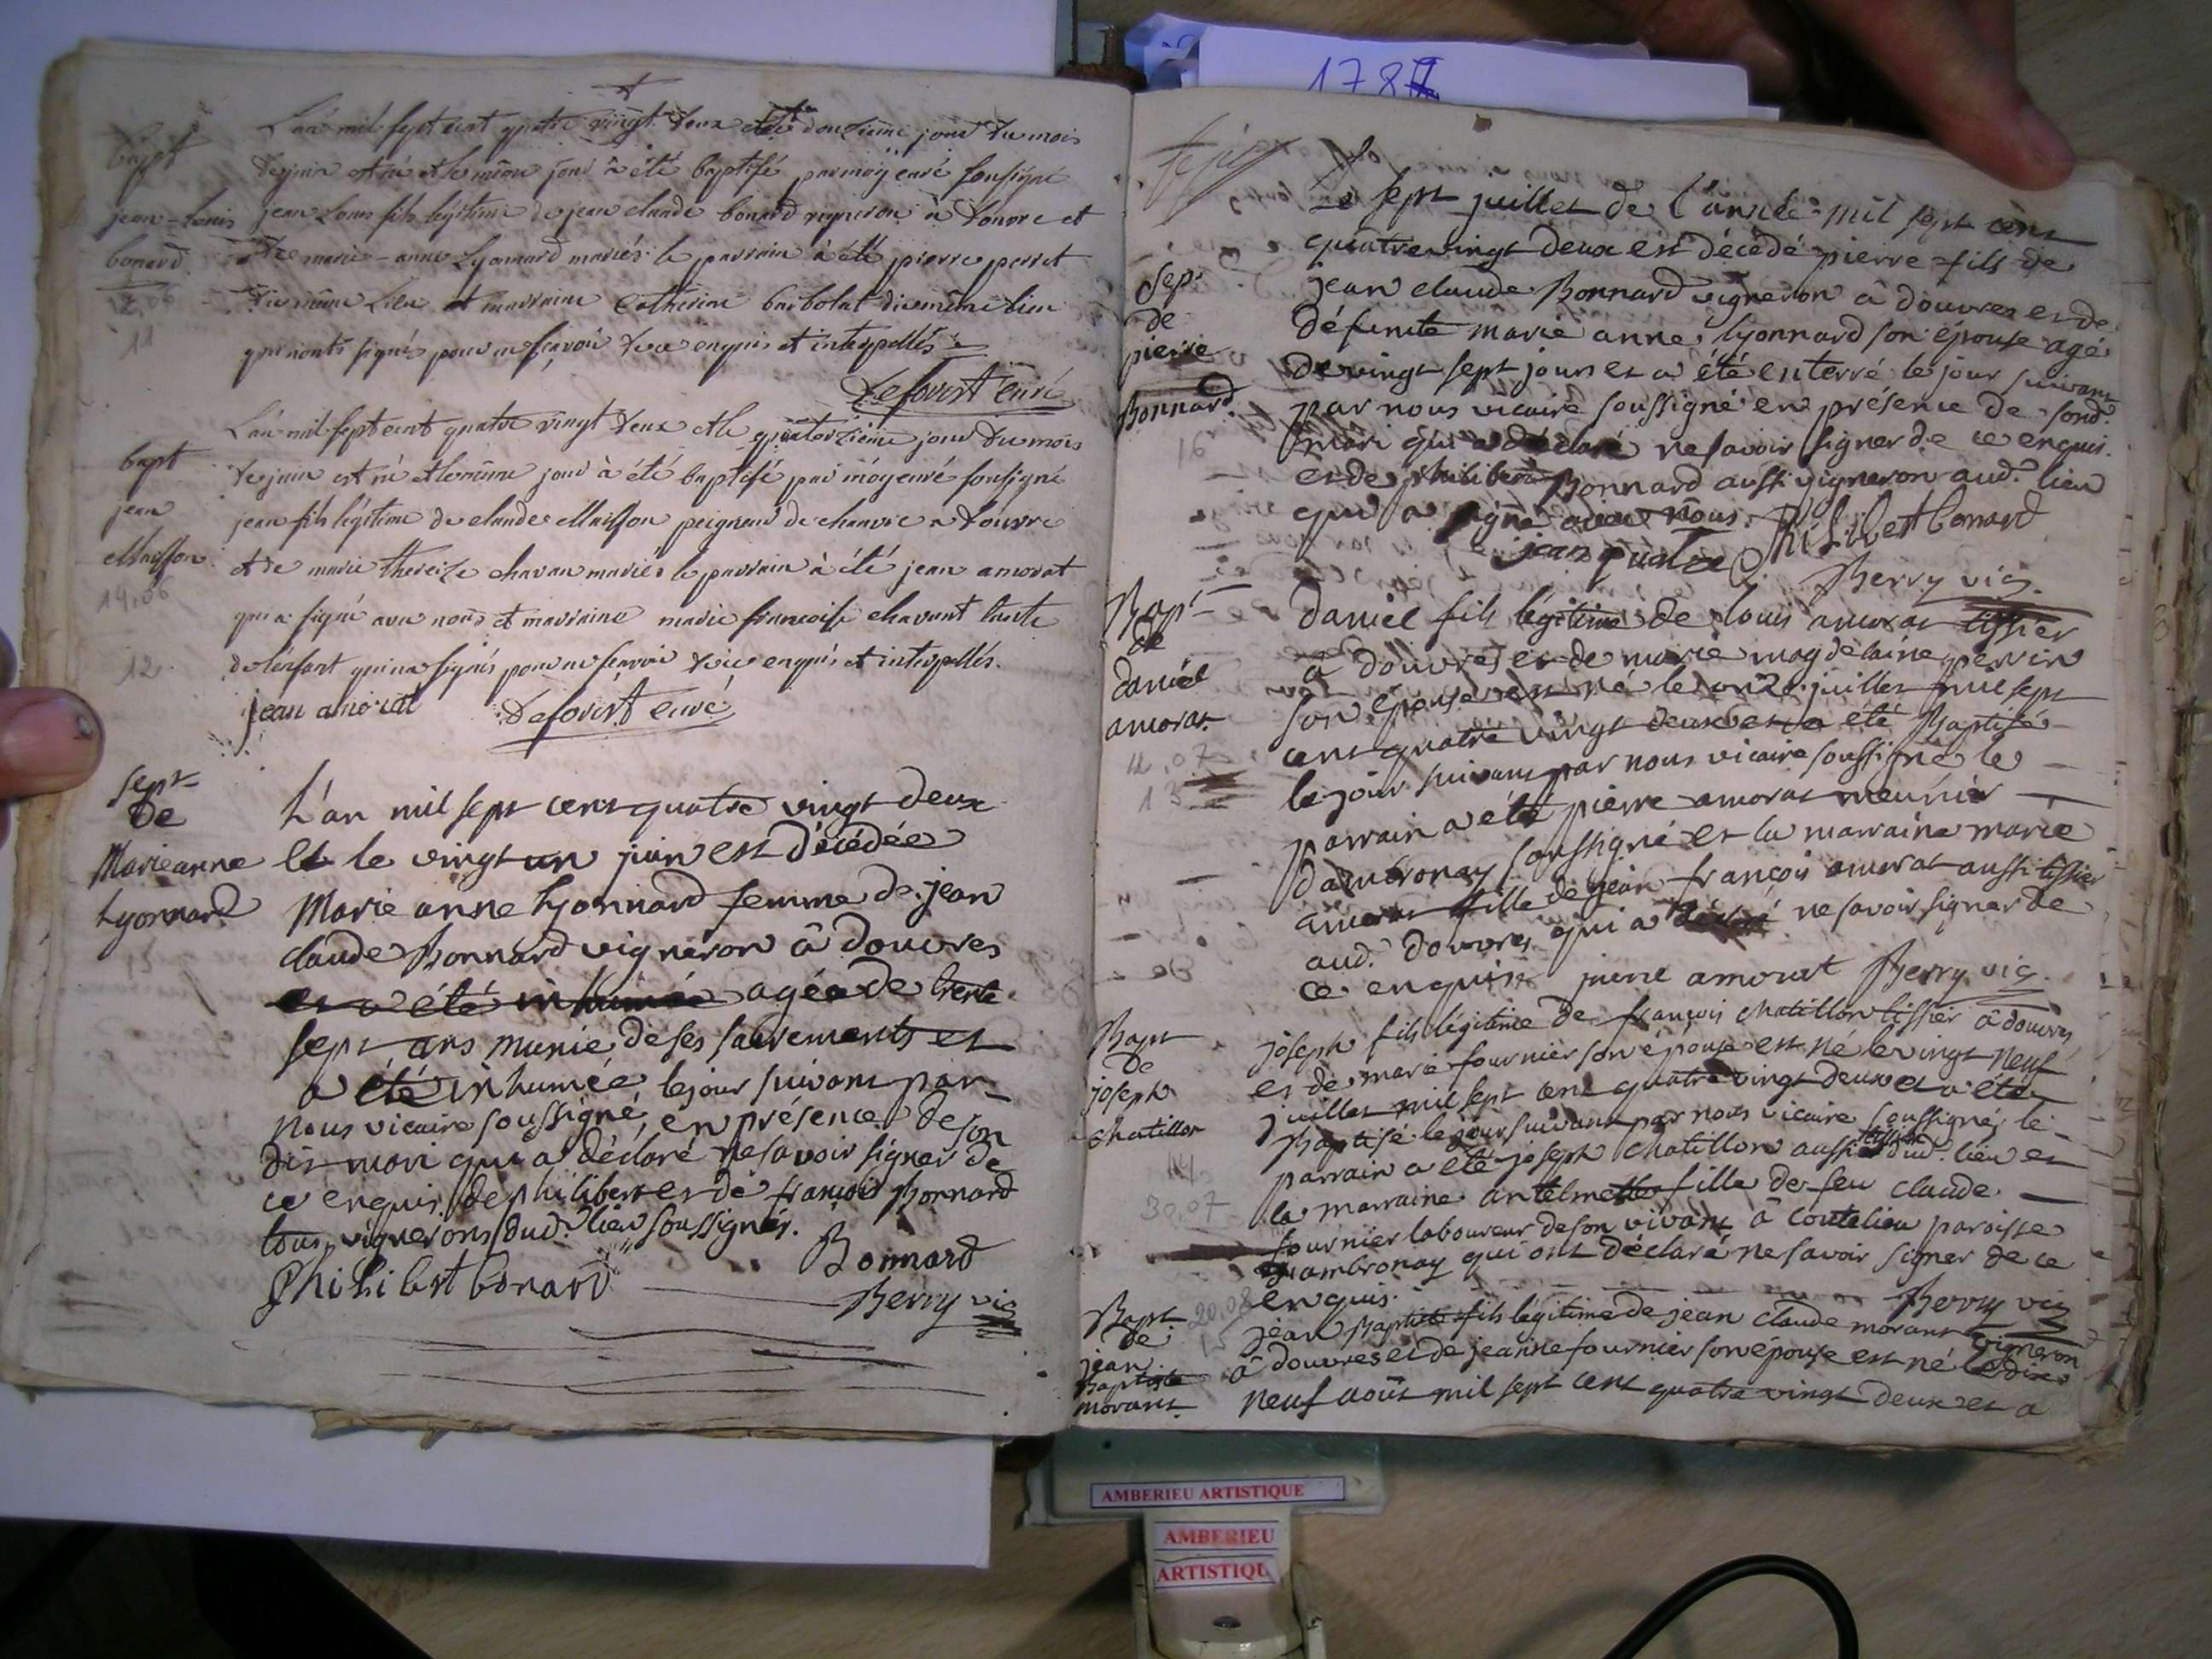 178
bapt
jean-Louis
bonard
12,06
11
L'an mil sept cent quatre vingt deux et le douzième jour du mois
de juin est né et le même jour à été baptisé par moÿ curé soussigné
jean Louis fils légitime de jean claude bonard vigneron à Douvre et
de marie-anne Lyonnard mariés le parrain à été pierre perret
du même Lieu et marraine Catherine barbolat du même lieu
qui nonts signés pour ne sçavoir de ce enquis et interpellés
Deforist curé
bapt
jean
Maisson
14,06
12
L'an mil sept cent quatre vingt deux et le quatorzième jour du mois
de juin est né et le même jour à été baptisé par moÿ curé soussigné
jean fils légitime de claude Maisson peigneur de chanvre à Douvre
et de marie thereize chavan mariés le parrain à été jean amorat
qui a signé avec nous et marraine marie francoise chavant tante
de lenfant qui na signés pour ne scavoir de ce enquis et interpellés.
jean amorat Deforist curé
sept
de
Marie anne
Lyonnard
L'an mil sept cent quatre vingt deux
et le vingt un juin est décédée
Marie anne Lyonnard femme de jean
claude Bonnard vigneron â douvres
et a été inhumée agée de trente
sept ans munie de ses sacrements et
a été inhumée le jour suivant par
nous vicaire soussigné, en présence de son
dit mari qui a déclaré ne savoir signer de
ce enquis, de philibert et de françois Bonnard
tous vignerons dud. lieu soussignés.
Philibert bonard Bonnard
Berry vic
Sep.
de
pierre
Bonnard
Le sept juillet de l'année mil sept cent
quatre vingt deux est décédé pierre fils de
jean claude Bonnard vigneron â douvres et de
défunte marie anne lyonnard son épouse agé
de vingt sept jours et a été enterré le jour suivant
par nous vicaire soussigné en présence de sond.
mari qui a déclaré ne savoir signer de ce enquis.
et de philibert Bonnard aussi vigneron aud. lieu
qui a signé avec nous. Philibert bonard
Berry vic.
Bapt
de
daniel
amorat
12,07
13
daniel fils légitime de louis amorat tissier
à douvres et de marie magdelaine perrin
son épouse est né le onze juillet mil sept
cent quatre vingt deux et a été Baptisé
le jour suivant par nous vicaire soussigné le
parrain a été pierre amorat meunier
d'ambronay soussigné et la marraine marie
amorat fille de jean françois amorat aussi tissier
aud. douvres qui a déclaré ne savoir signer de
ce enquis pierre amorat Berry vic.
Bapt
de
joseph
chatillon
14
30,07
joseph fils légitime de françois chatillon tissier â douvres
et de marie fournier son épouse est né le vingt neuf
juillet mil sept cent quatre vingt deux et a été
Baptisé le jour suivant par nous vicaire soussigné, le
parrain a été joseph chatillon aussi tissier dud. lieu et
la marraine antelmette fille de feu claude
fournier laboureur de son vivant â coutelieu paroisse
d'ambronay qui ont déclaré ne savoir signer de ce
enquis. Berry vic
Bapt
de
jean
Baptiste
morant
20,08
15
jean Baptiste fils légitime de jean claude morant vigneron
â douvres et de jeanne fournier son épouse est né le dix
neuf août mil sept cent quatre vingt deux et a
AMBERIEU ARTISTIQUE
AMBERIEU
ARTISTIQU